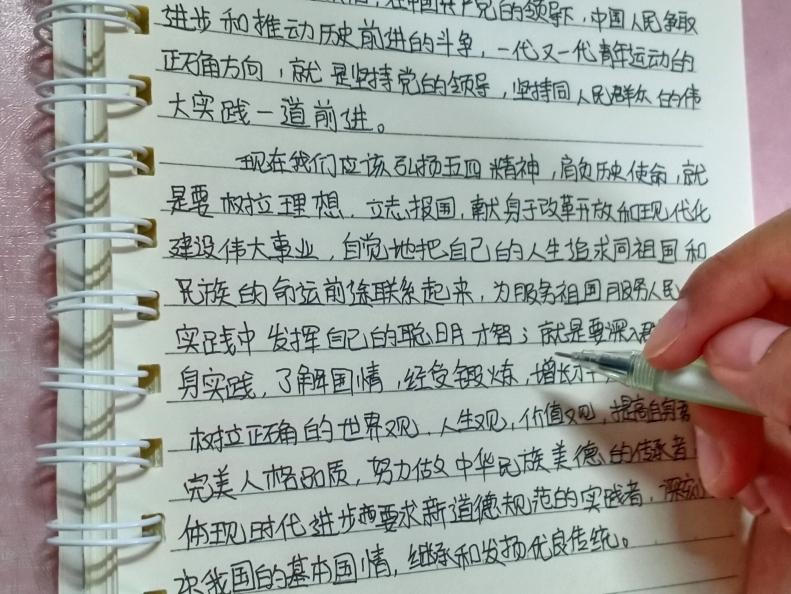 在中国共产党的领导下，中国人民争取
进步和推动历史前进的斗争，一代又一代青年运动的
正确方向，就是坚持党的领导，坚持同人民群众的伟
大实践一道前进。
现在我们应该弘扬五四精神，肩负历史使命，就
是要树立理想、立志报国，献身于改革开放和现代化
建设伟大事业，自觉地把自己的人生追求同祖国和
民族的命运前途联系起来，为服务祖国服务人民
实践中发挥自己的聪明才智；就是要深入
身实践，了解国情，经受锻炼，增长才
树立正确的世界观、人生观，价值观，提高自身
完美人格品质，努力做中华民族美德的传承者
体现时代进步要求新道德规范的实践者，深刻
我国的基本国情，继承和发扬优良传统。